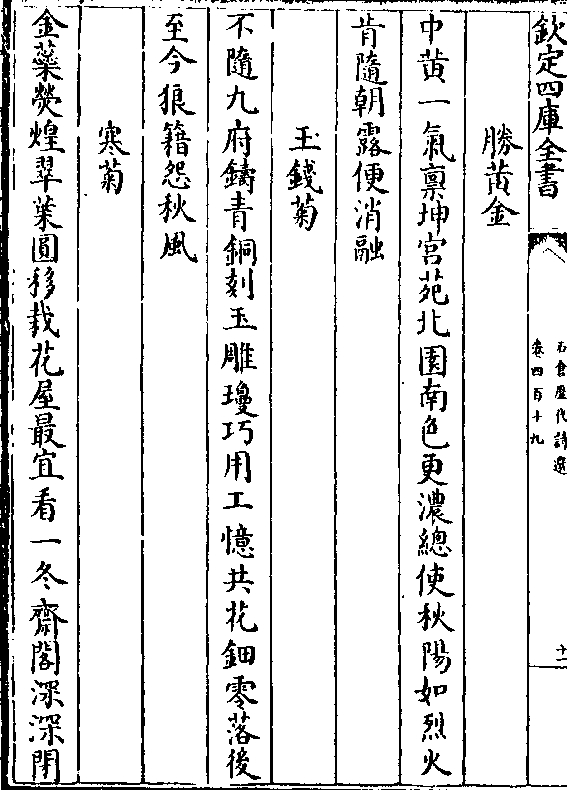 欽定四庫全書
石倉歷代詩選
卷四百十九
十二
勝黄金
中黄一氣禀坤宫苑北園南色更濃總使秋陽如烈火
肯隨朝露便消融
玉錢菊
不隨九府鑄青銅刻玉雕瓊巧用工憶共花鈿零落後
至今狼籍怨秋風
寒菊
金蘂熒煌翠葉圓移栽花屋最宜看一冬齋閣深深閉